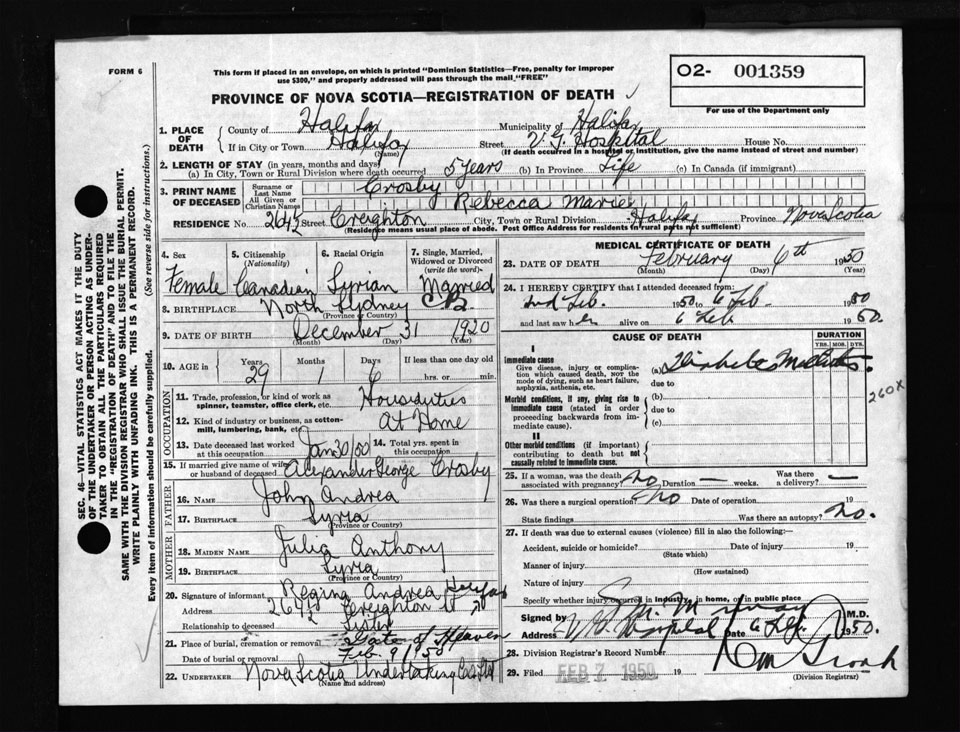 FORM 6
This form if placed in an envelope, on which is printed "Dominion Statistics—Free, penalty for improper
use $300," and properly addressed will pass through the mail "FREE"
O2- 001359
For use of the Department only
PROVINCE OF NOVA SCOTIA—REGISTRATION OF DEATH
1. PLACE OF DEATH
County of Halifax Municipality of Halifax
If in City or Town Halifax (Name) Street V.G. Hospital House No.
(If death occurred in a hospital or institution, give the name instead of street and number)
2. LENGTH OF STAY (in years, months and days)
(a) In City, Town or Rural Division where death occurred 5 years (b) In Province Life (c) In Canada (if immigrant)
3. PRINT NAME OF DECEASED
Surname or Last Name Crosby
All Given or Christian Names Rebecca Marie
RESIDENCE No. 264½ Street Creighton City, Town or Rural Division Halifax Province Nova Scotia
(Residence means usual place of abode. Post Office Address for residents in rural parts not sufficient)
4. Sex Female
5. Citizenship (Nationality) Canadian
6. Racial Origin Syrian
7. Single, Married, Widowed or Divorced (write the word) Married
8. BIRTHPLACE North Sydney C.B.
(Province or Country)
9. DATE OF BIRTH December 31 1920
(Month) (Day) (Year)
10. AGE in Years 29 Months 1 Days 6 If less than one day old
hrs. or min.
OCCUPATION
11. Trade, profession or kind of work as spinner, teamster, office clerk, etc. Housduties
12. Kind of industry or business, as cotton-mill, lumbering, bank, etc. At Home
13. Date deceased last worked at this occupation Jan 30/50
14. Total yrs. spent in this occupation
15. If married give name of wife or husband of deceased Alexander George Crosby
FATHER
16. NAME John Andrea
17. BIRTHPLACE Syria
(Province or Country)
MOTHER
18. MAIDEN NAME Julia Anthony
19. BIRTHPLACE Syria
(Province or Country)
20. Signature of informant Regina Andrea
Address 264½ Creighton St Halifax
Relationship to deceased Sister
21. Place of burial, cremation or removal Gate of Heaven
Date of burial or removal Feb 9/50
22. UNDERTAKER Nova Scotia Undertaking Co Ltd
(Name and address)
MEDICAL CERTIFICATE OF DEATH
23. DATE OF DEATH February 6th 1950
(Month) (Day) (Year)
24. I HEREBY CERTIFY that I attended deceased from:
2nd Feb. 1950 to 6 Feb 1950
and last saw her alive on 6 Feb 1950.
CAUSE OF DEATH
DURATION
YRS. MOS. DYS.
I
Immediate cause
Give disease, injury or complication which caused death, NOT the mode of dying, such as heart failure, asphyxia, asthenia, etc.
(a) Diabetes Mellitus
due to
Morbid conditions, if any, giving rise to immediate cause (stated in order proceeding backwards from immediate cause).
(b)
due to
(c)
260X
II
Other morbid conditions (if important) contributing to death but not causally related to immediate cause.
25. If a woman, was the death associated with pregnancy? No Duration — weeks. Was there a delivery? —
26. Was there a surgical operation? No Date of operation 19
State findings Was there an autopsy? No.
27. If death was due to external causes (violence) fill in also the following:—
Accident, suicide or homicide? Date of injury 19
(State which)
Manner of injury
(How sustained)
Nature of injury
Specify whether injury occurred in industry, in home, or in public place
Signed by M.D.
Address V.G. Hospital Date 6 Feb. 1950.
28. Division Registrar's Record Number
29. Filed FEB 7 1950 19
(Division Registrar)
SEC. 46—VITAL STATISTICS ACT MAKES IT THE DUTY
OF THE UNDERTAKER OR PERSON ACTING AS UNDER-
TAKER TO OBTAIN ALL THE PARTICULARS REQUIRED
IN THE "REGISTRATION OF DEATH" AND TO FILE THE
SAME WITH THE DIVISION REGISTRAR WHO SHALL ISSUE THE BURIAL PERMIT.
WRITE PLAINLY WITH UNFADING INK. THIS IS A PERMANENT RECORD.
Every item of information should be carefully supplied. (See reverse side for instructions.)